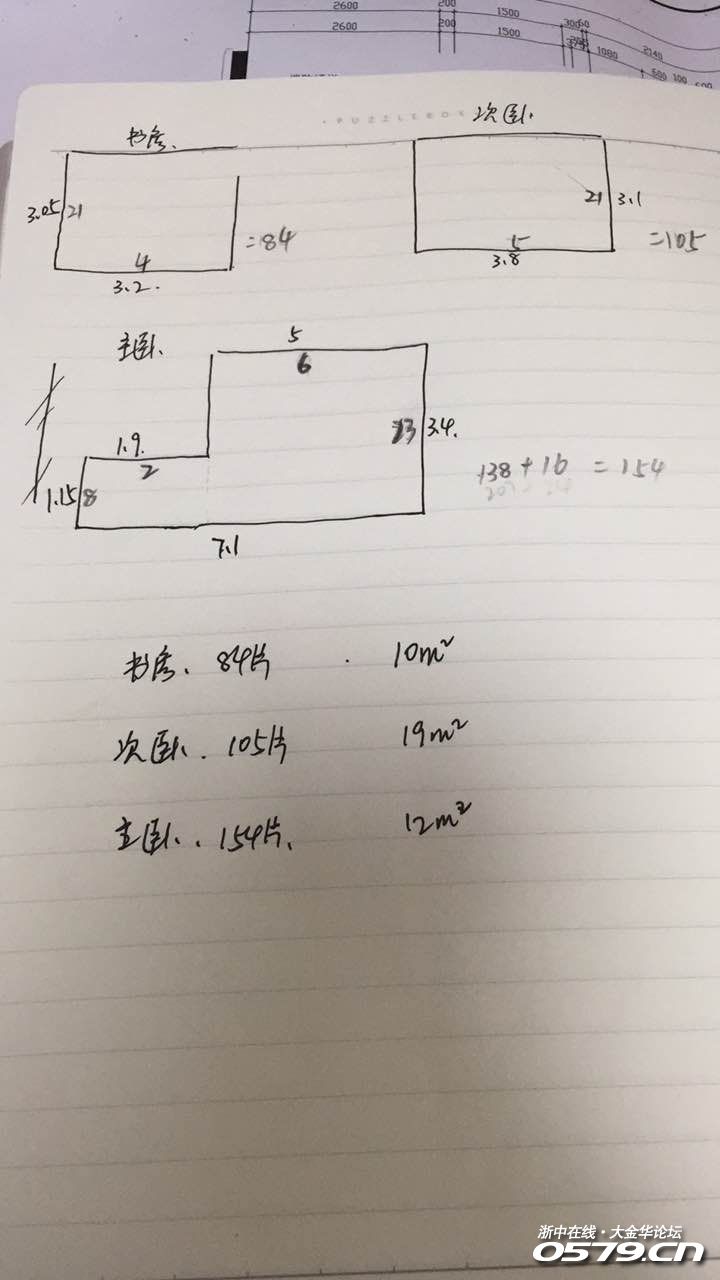 2600 200 1500
2600 200 1500 1080 2140
100
PUZZLE
书房. 次卧.
3.05 21 4 3.2. =84
21 3.1 5 3.8 =105
主卧.
5
6
1.9.
2
23 3.4.
1.15 8
7.1
138+16 =154
书房、84片 10m²
次卧、105片 19m²
主卧、154片、 12m²
浙中在线·大金华论坛
0579.CN